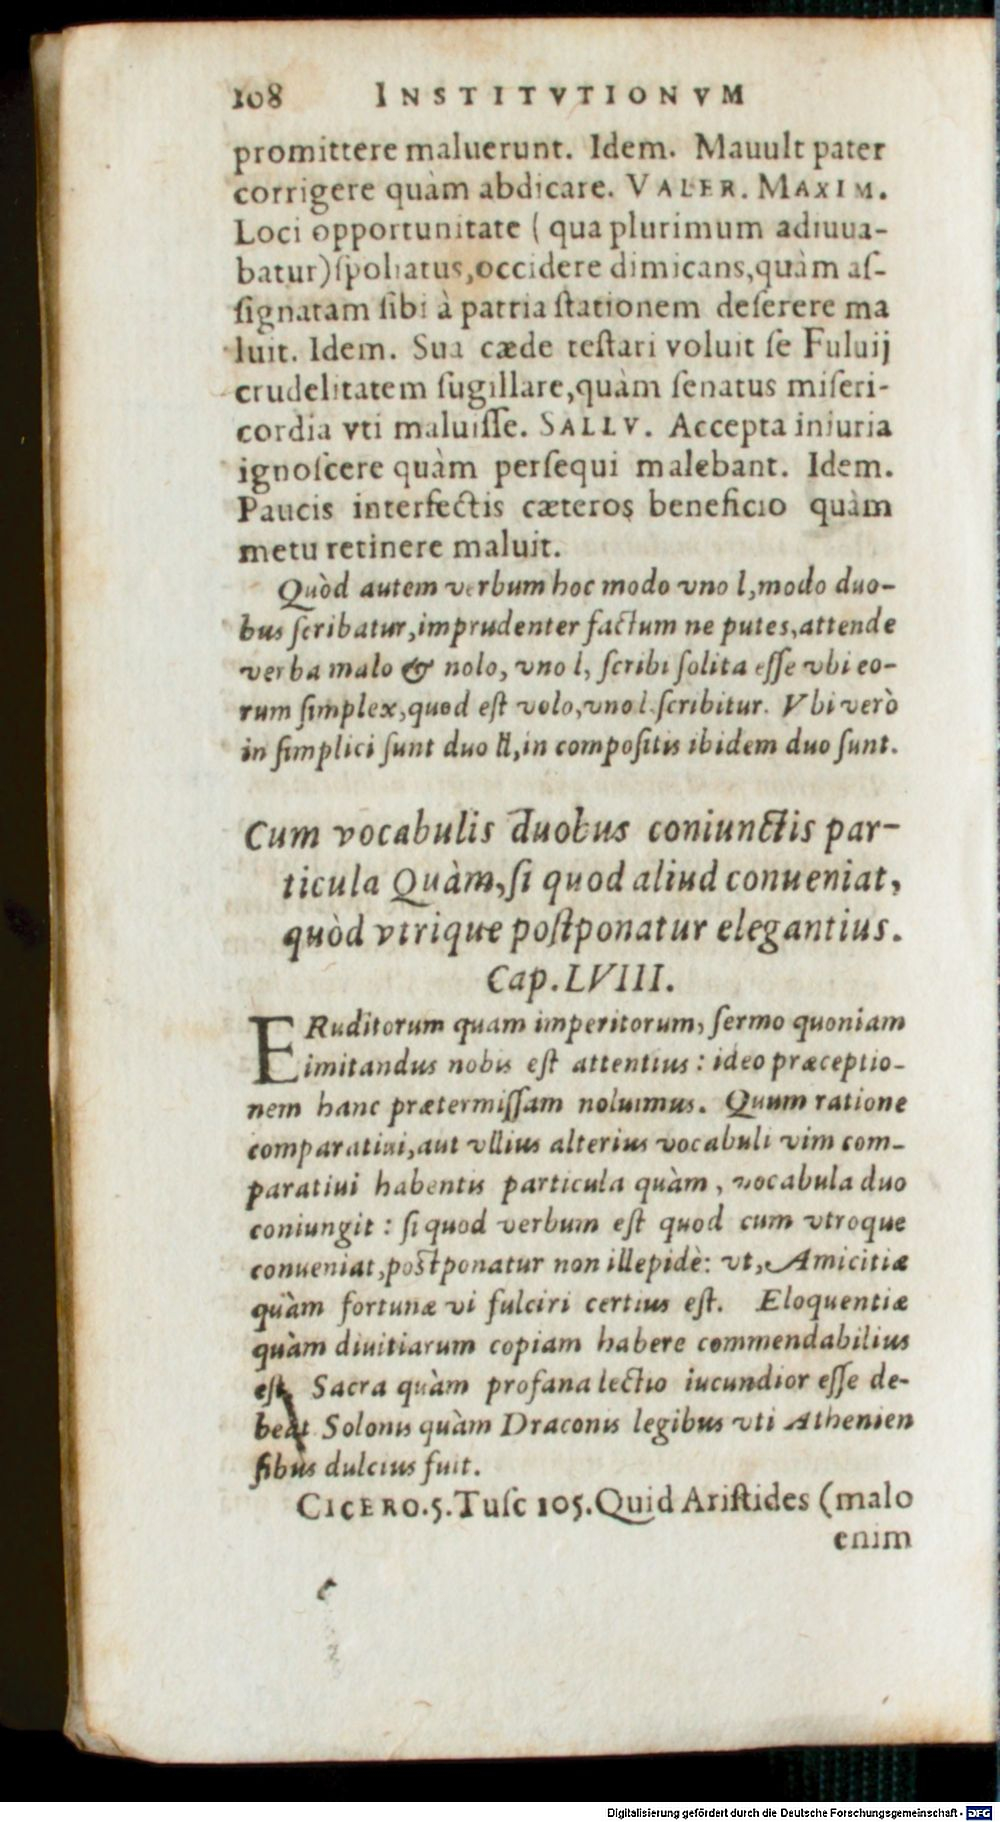 108 INSTITVTIONVM
promittere maluerunt. Idem. Mauult pater
corrigere quàm abdicare. VALER. MAXIM.
Loci opportunitate ( qua plurimum adiuua-
batur)ſpoliatus,occidere dimicans,quàm aſ-
ſignatam ſibi à patria ſtationem deſerere ma
luit. Idem. Sua cæde teſtari voluit ſe Fuluij
crudelitatem ſugillare,quàm ſenatus miſeri-
cordia vti maluiſſe. SALLV. Accepta iniuria
ignoſcere quàm perſequi malebant. Idem.
Paucis interfectis cæteros beneficio quàm
metu retinere maluit.
Quòd autem verbum hoc modo vno l,modo duo-
bus ſcribatur,imprudenter factum ne putes,attende
verba malo & nolo, vno l, ſcribi ſolita eſſe vbi eo-
rum ſimplex,quod eſt volo,vno l ſcribitur. Vbi verò
in ſimplici ſunt duo ll,in compoſitis ibidem duo ſunt.
Cum vocabulis duobus coniunctis par-
ticula Quàm,ſi quod aliud conueniat,
quòd vtrique poſtponatur elegantius.
Cap. LVIII.
ERuditorum quam imperitorum, ſermo quoniam
imitandus nobis eſt attentius : ideo præceptio-
nem hanc prætermiſſam noluimus. Quum ratione
comparatiui,aut vllius alterius vocabuli vim com-
paratiui habentis particula quàm, vocabula duo
coniungit : ſi quod verbum eſt quod cum vtroque
conueniat,poſtponatur non illepidè: vt, Amicitiæ
quàm fortunæ vi fulciri certius eſt. Eloquentiæ
quàm diuitiarum copiam habere commendabilius
eſt. Sacra quàm profana lectio iucundior eſſe de-
beat Solonis quàm Draconis legibus vti Athenien
ſibus dulcius fuit.
CICERO.5.Tuſc 105.Quid Ariſtides (malo
enim
Digitalisierung gefördert durch die Deutsche Forschungsgemeinschaft - DFG